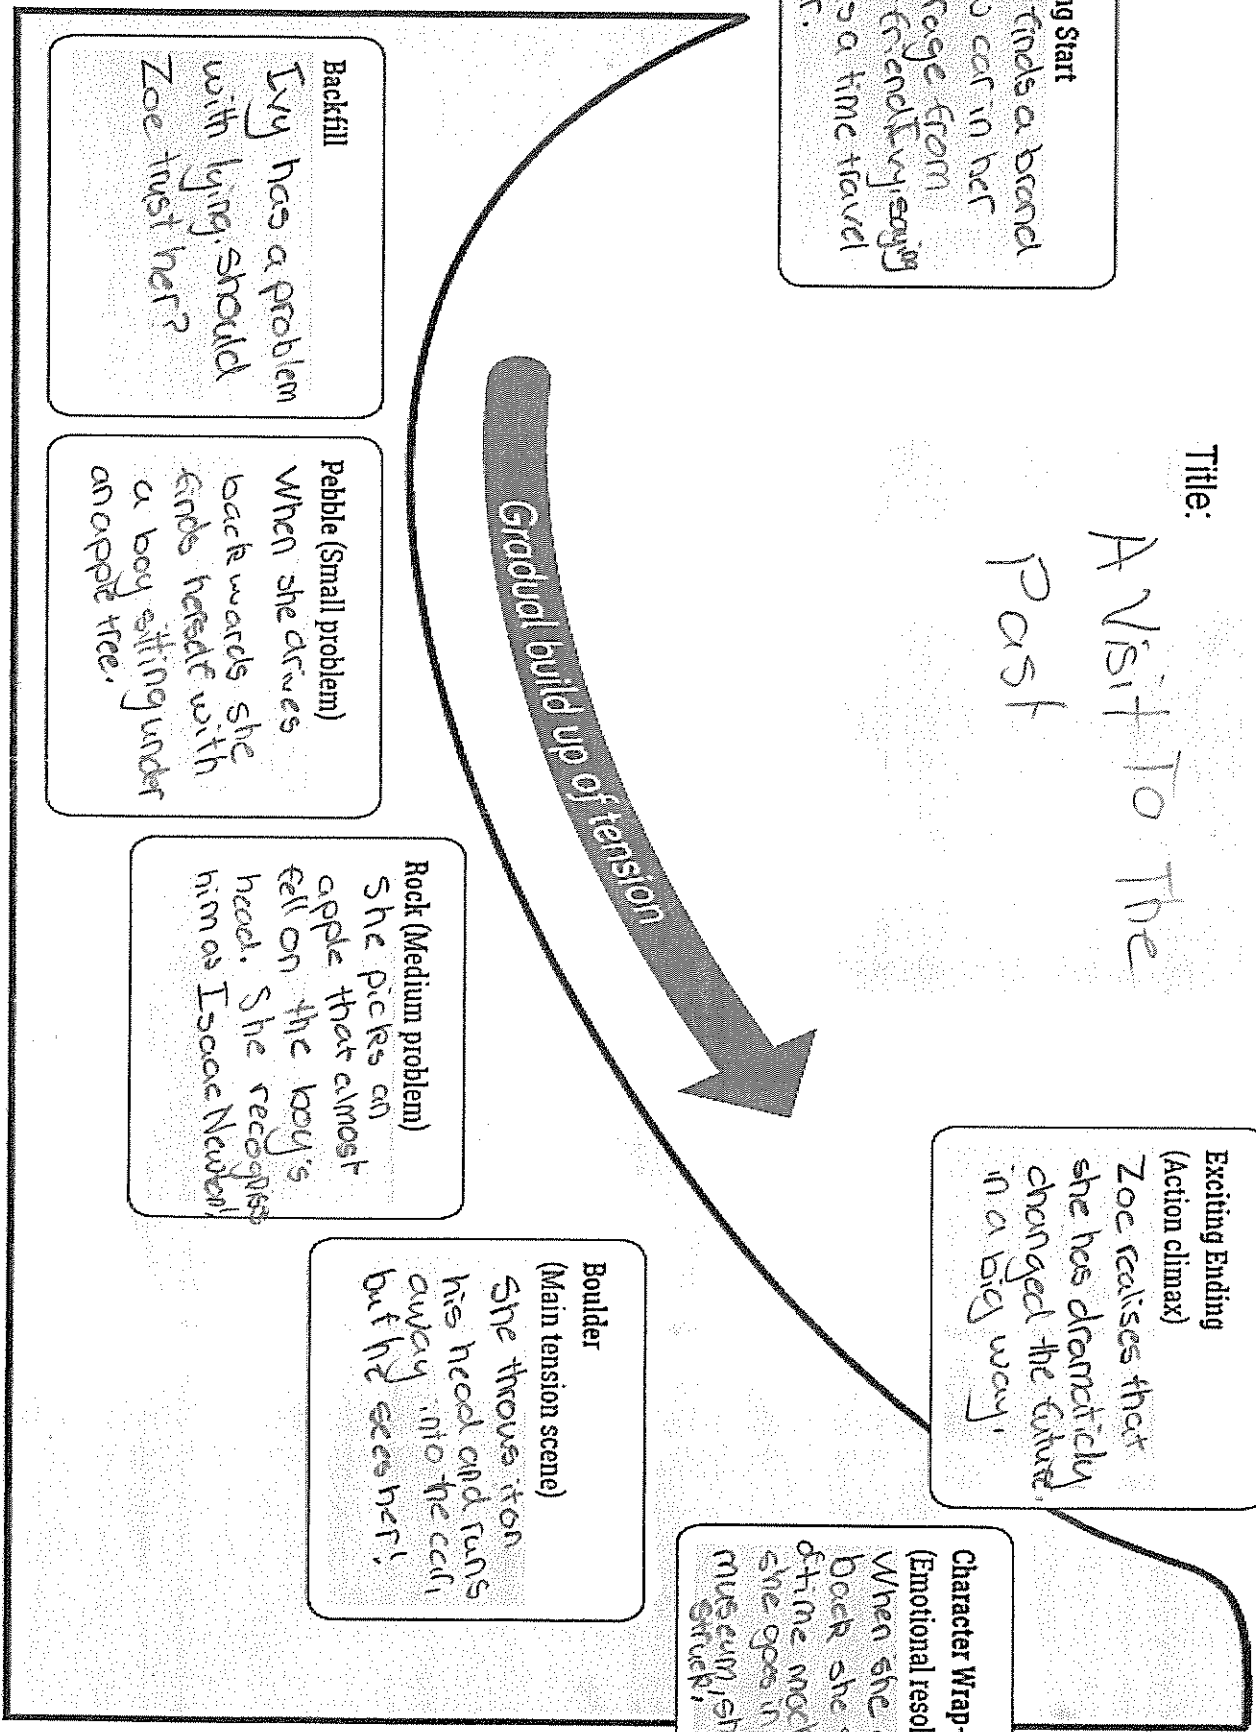 Title:
A Visit To The
Past
ng Start
finds a brand
car in her
rage from
friend Ivy, saying
s a time travel
r.
Backfill
Ivy has a problem
with lying. Should
Zoe trust her?
Pebble (Small problem)
When she drives
backwards she
finds herself with
a boy sitting under
an apple tree.
Rock (Medium problem)
She picks an
apple that almost
fell on the boy's
head. She recognises
him as Isaac Newton!
Boulder
(Main tension scene)
She throws it on
his head and runs
away into the car,
but he sees her!
Gradual build up of tension
Exciting Ending
(Action climax)
Zoe realises that
she has dramaticly
changed the future,
in a big way.
Character Wrap-
(Emotional resol
When she
back she
of time mach
she goes in
museum, sh
struck,